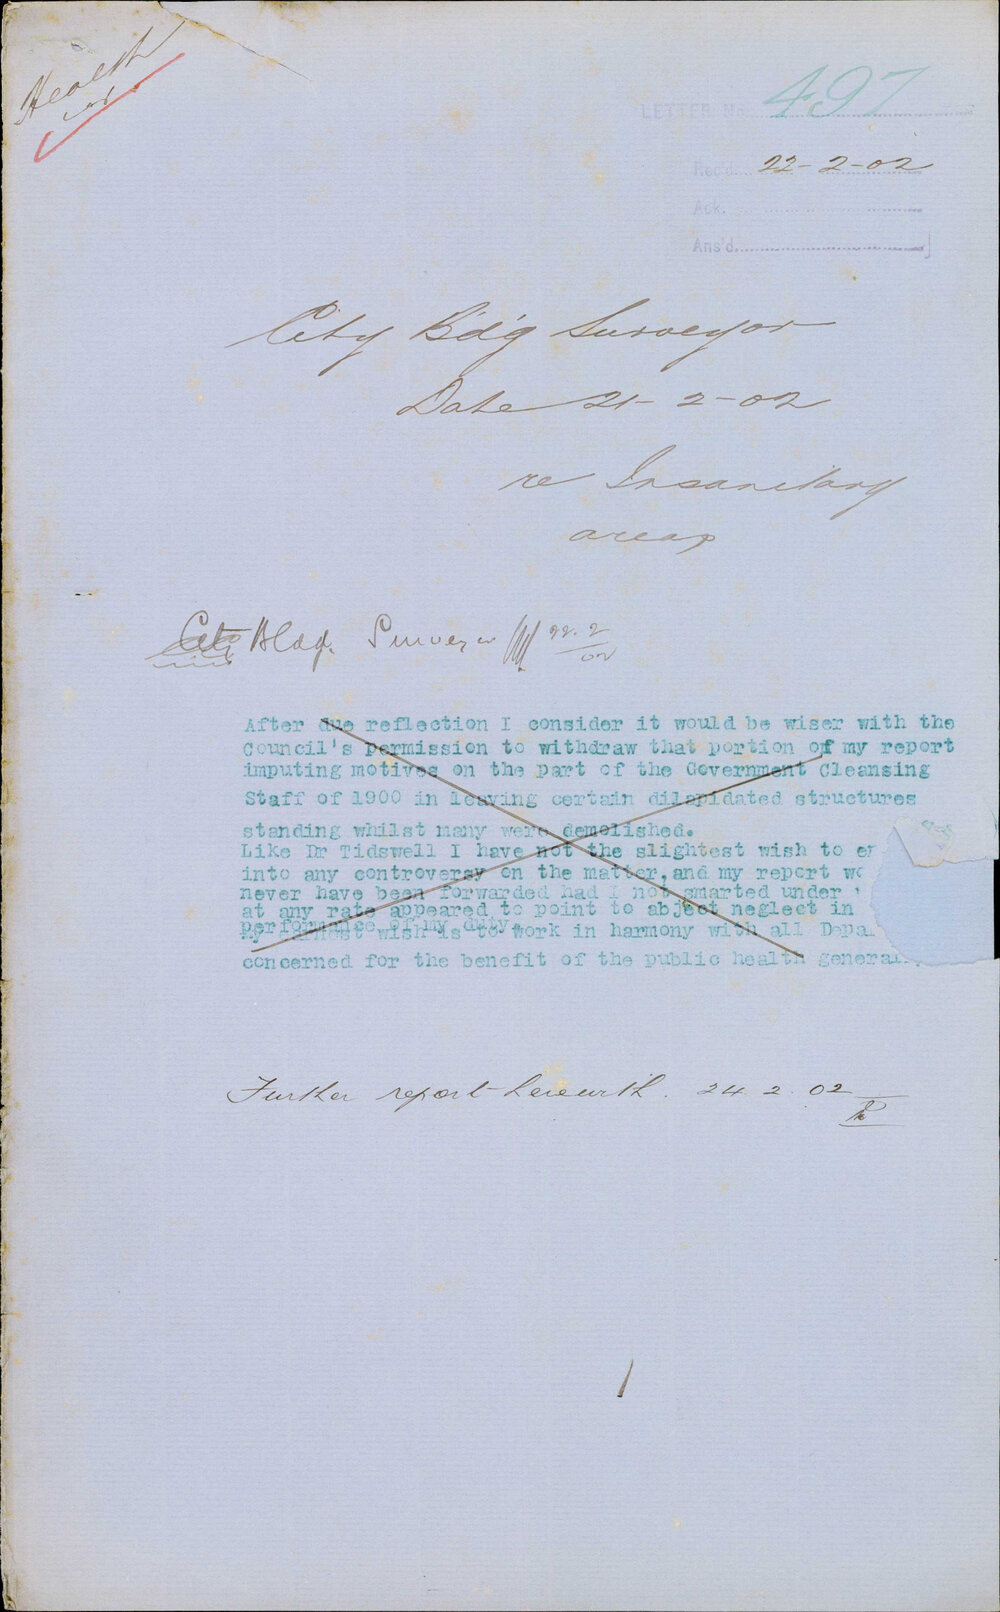 Health
LETTER No. 497
Rec'd. 22-2-02
Ack.
Ans'd.
City B'd'g Surveyor
Date 21-2-02
re Insanitary
areas
City Bldg. Surveyor 22.2/02
After due reflection I consider it would be wiser with the
Council's permission to withdraw that portion of my report
imputing motives on the part of the Government Cleansing
Staff of 1900 in leaving certain dilapidated structures
standing whilst many were demolished.
Like Dr Tidswell I have not the slightest wish to en
into any controversy on the matter, and my report wo
never have been forwarded had I not smarted under
at any rate appeared to point to abject neglect in
performance of my duty.
My earnest wish is to work in harmony with all Depa
concerned for the benefit of the public health general
Further report herewith. 24.2.02